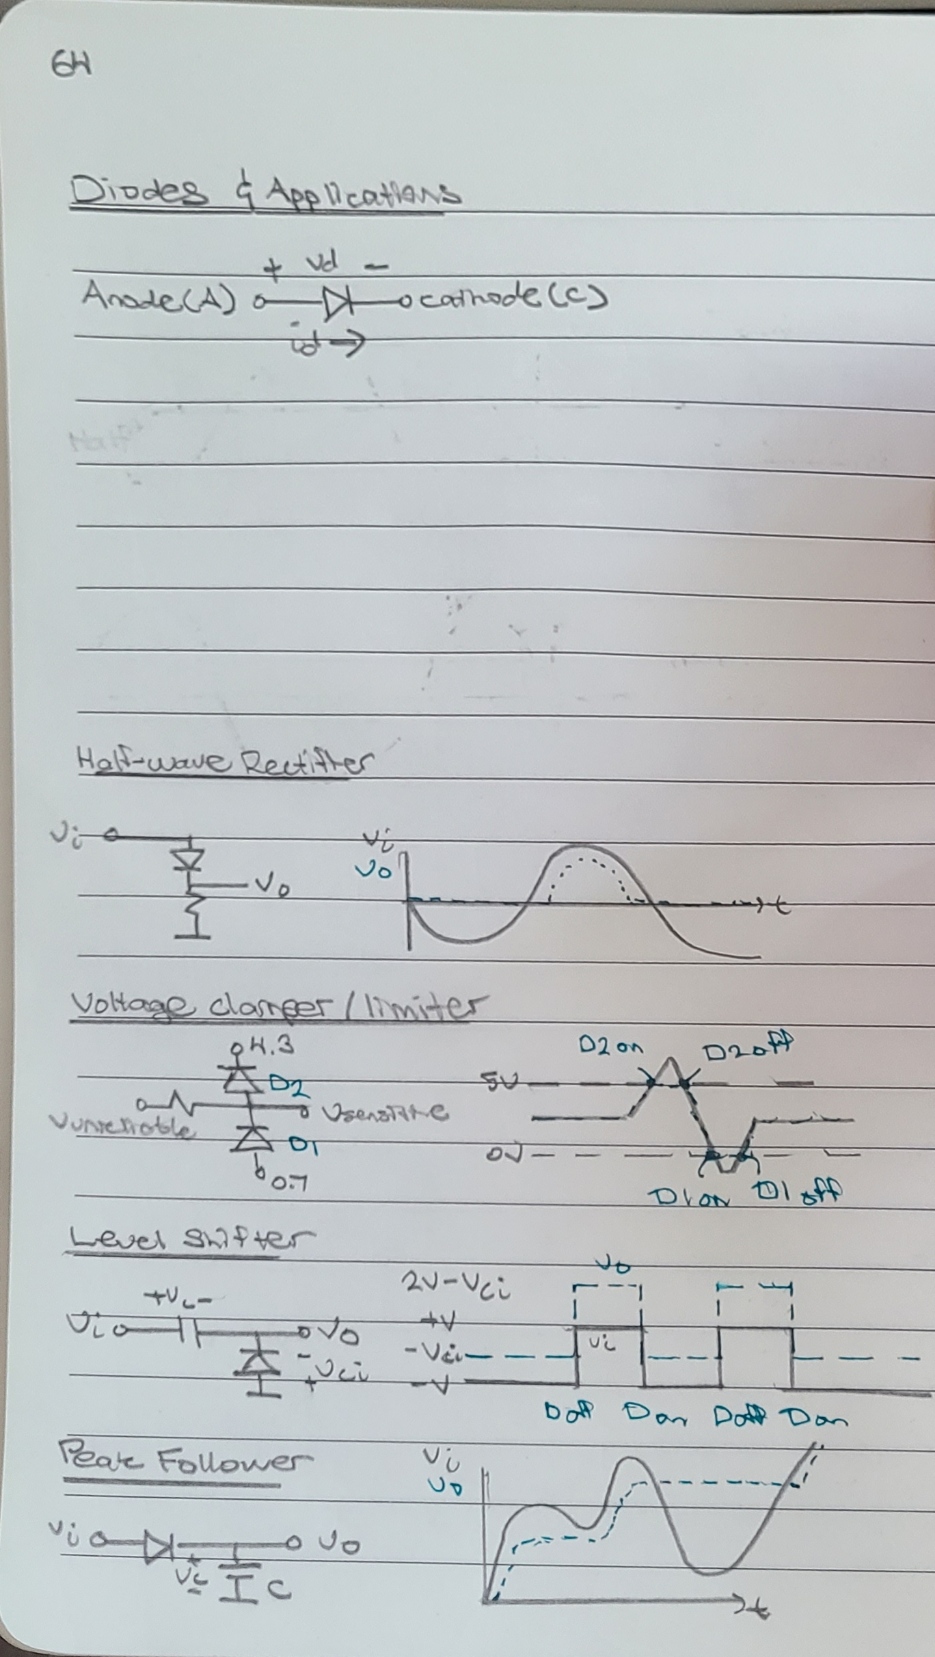 64
Diodes & Applications
+ Vd -
Anode(A) cathode(C)
id →
Half-wave Rectifier
Vi Vi
Vo Vo
t
Voltage clamper/limiter
4.3 D2 on D2 off
D2 5V
Vsensitive
D1 0V
0.7
D1 on D1 off
Level Shifter
Vo
2V-Vci
+Vc-
Vi Vo +V
- Vci -Vci Vi
+ -V
D off D on D off D on
Peak Follower Vi
Vo
Vi Vo
+
Vc C
-
t